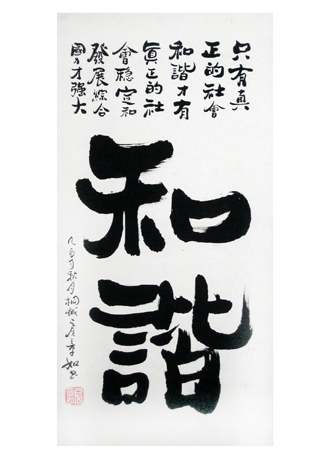 只有真
正的社會
和諧才有
眞正的社
會穩定和
發展綜合
國力才强大
和諧
秋月桐城